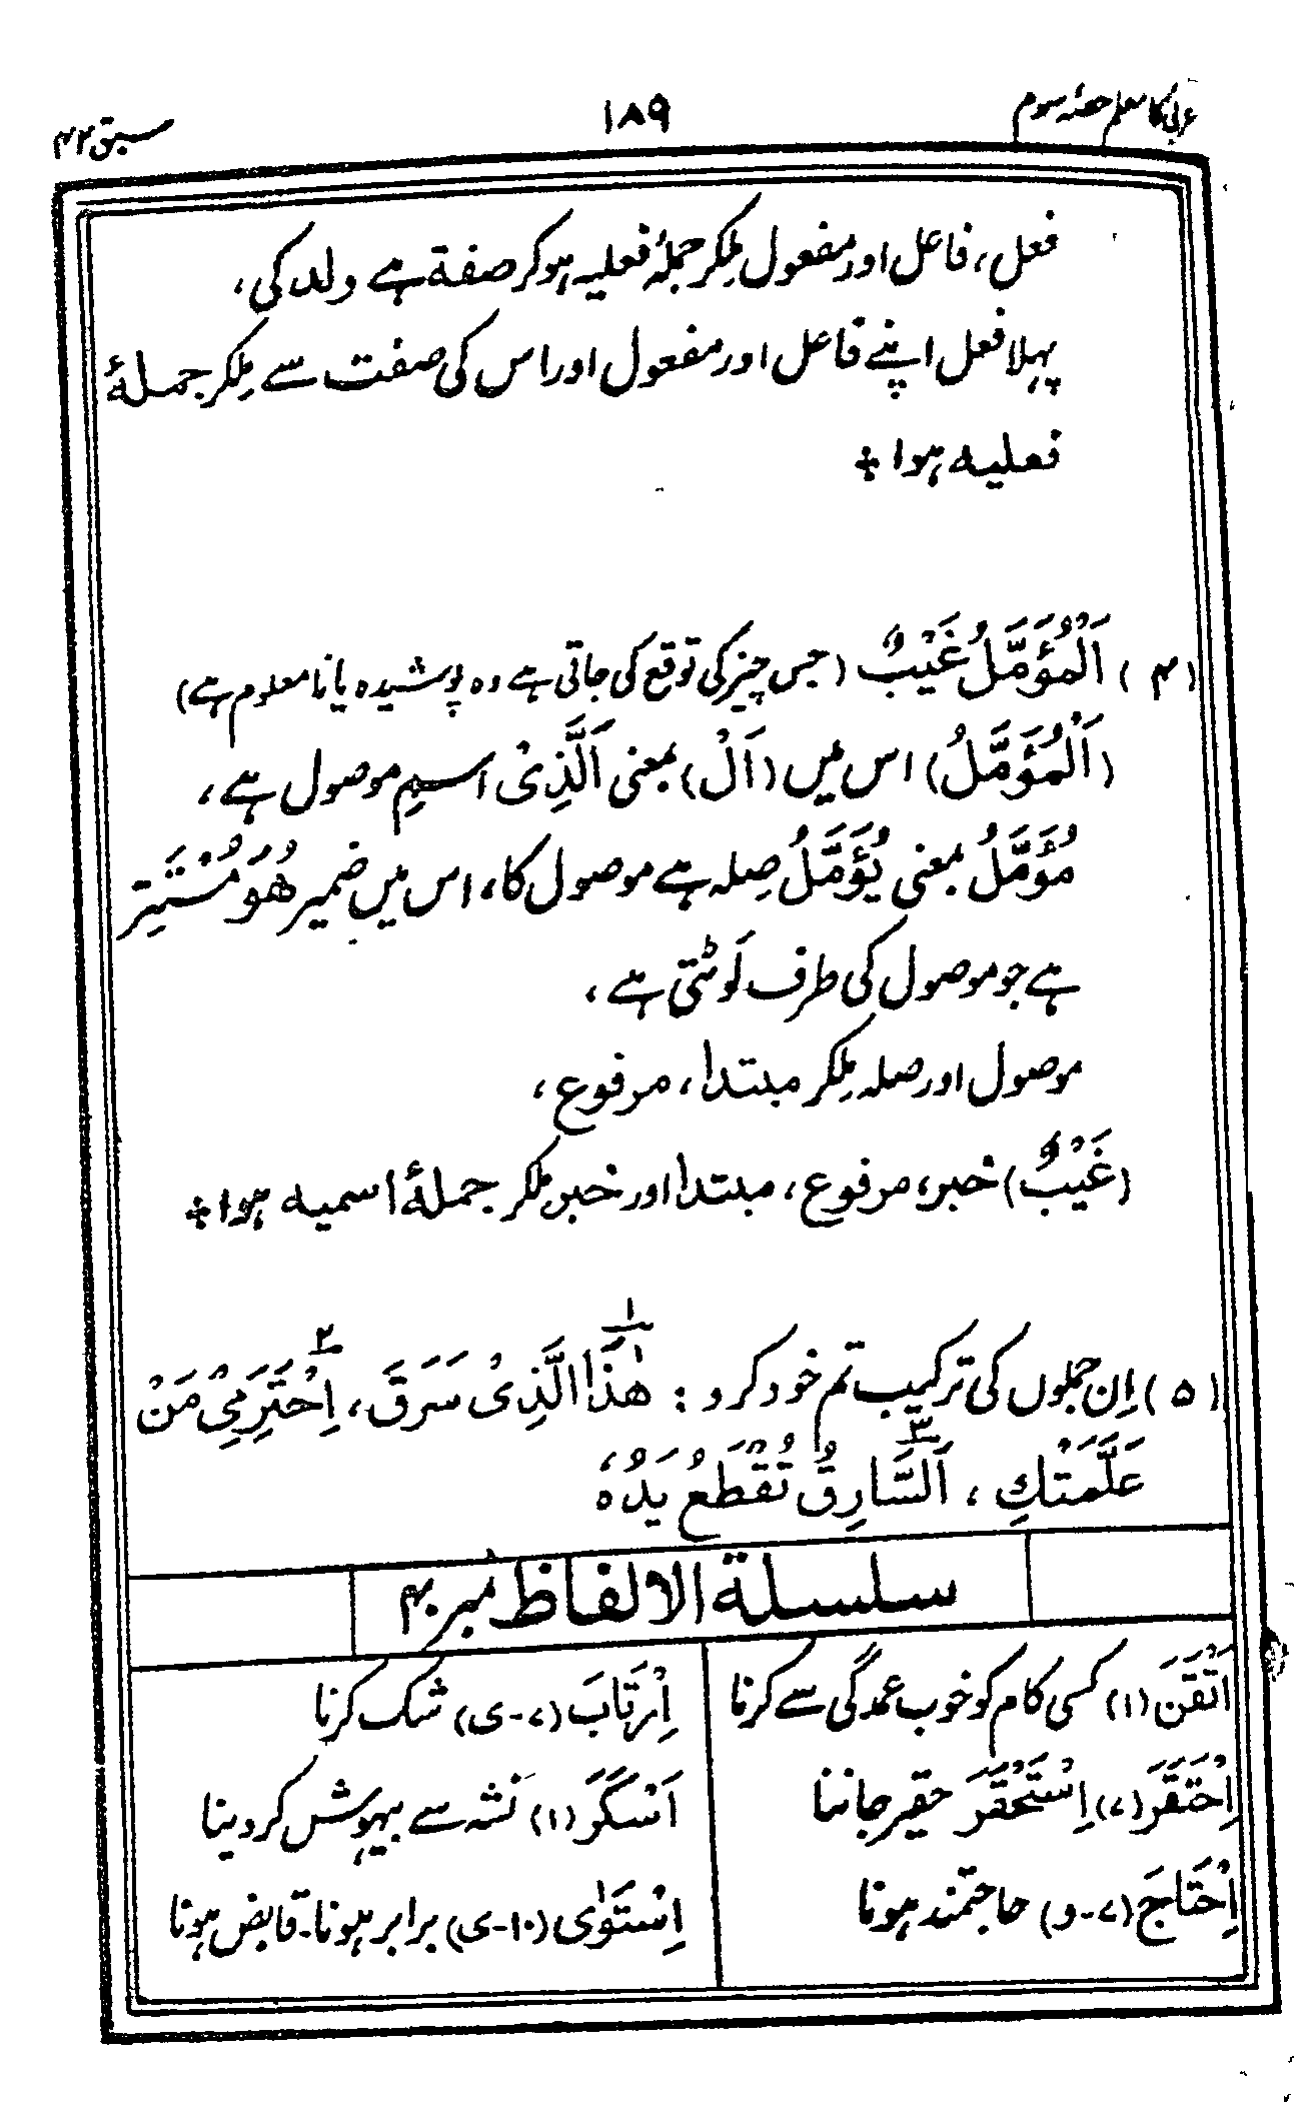 عربی کا معلم حصّہ سوم
۱۸۹
سبق ۴۲
فعل، فاعل اور مفعول ملکر جملۂ فعلیہ ہوکر صفة ہے ولد کی،
پہلا فعل اپنے فاعل اور مفعول اور اس کی صفت سے ملکر جملۂ
فعلیہ ہوا ÷
(۴) اَلْمُؤَمَّلُ غَيْبٌ (جس چیز کی توقع کی جاتی ہے وہ پوشیدہ یا نا معلوم ہے)
(اَلْمُؤَمَّلُ) اس میں (اَلْ) بمعنی اَلَّذِیْ اسمِ موصول ہے،
مُؤَمَّلُ بمعنی یُؤَمَّلُ صِلہ ہے موصول کا، اس میں ضمیر هُوَ مُسْتَتِر
ہے جو موصول کی طرف لَوٹتی ہے،
موصول اور صلہ ملکر مبتدا، مرفوع،
(غَيْبٌ) خبر، مرفوع، مبتدا اور خبر ملکر جملۂ اسمیہ ہوا ÷
(۵) اِن جملوں کی ترکیب تم خود کرو : ۱ هٰذَا الَّذِیْ سَرَقَ، ۲ اِحْتَرِمِیْ مَنْ
عَلَّمَتْكِ ، ۳ اَلسَّارِقُ تُقْطَعُ یَدُهٗ
سلسلة الالفاظ نمبر ۴۰
اَتْقَنَ (۱) کسی کام کو خوب عمدگی سے کرنا
اِحْتَقَرَ (۷) اِسْتَحْقَرَ حقیر جاننا
اِحْتَاجَ (۷-و) حاجتمند ہونا
اِرْتَابَ (۷-ی) شک کرنا
اَسْكَرَ (۱) نَشہ سے بیہوش کر دینا
اِسْتَوٰی (۱۰-ی) برابر ہونا۔ قابض ہونا